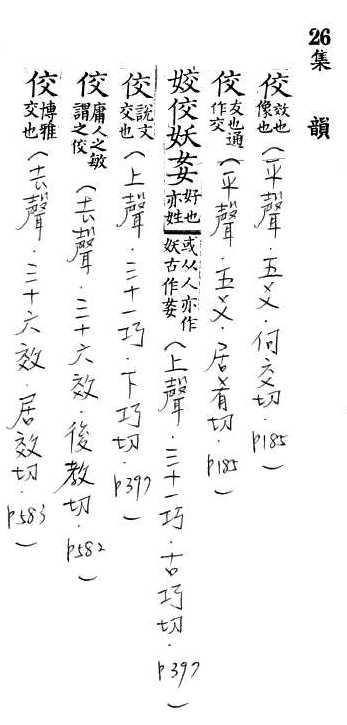 26集 韻
佼效也像也(平聲.五爻.何交切.p185)
佼友也通作交(平聲.五爻.居肴切.p185)
姣佼妖㚣好也亦姓或从人亦作妖古作㚣(上聲.三十一巧.古巧切.p397)
佼說文交也(上聲.三十一巧.下巧切.p397)
佼庸人之敏謂之佼(去聲.三十六效.後教切.p582)
佼博雅交也(去聲.三十六效.居效切.p583)